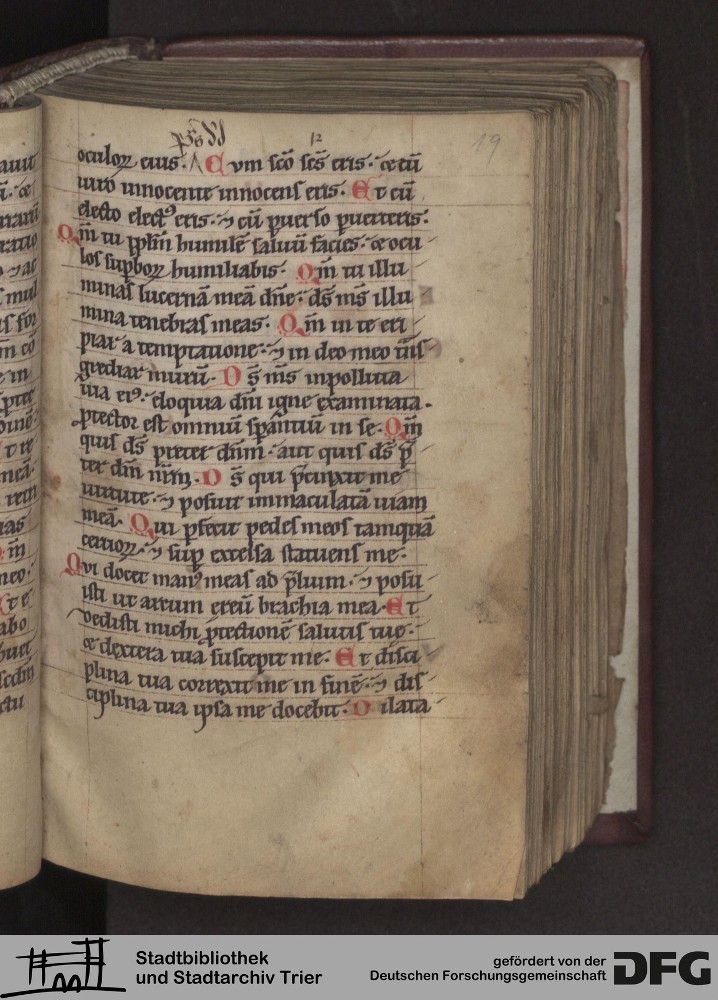 12
19
oculoꝝ eius. Cvm sc̄o sc̄s eris. ⁊ cū
uiro innocente innocens eris. Et cū
electo elect᷒ eris. ⁊ cū ꝑuerso ꝑuerteris.
Qm̄ tu ppl̄m humilē saluū facies. ⁊ ocu
los suꝑboꝝ humiliabis. Qm̄ tu illu
minas lucernā meā dn̄e. ds̄ ms̄ illu
mina tenebras meas. Qm̄ in te eri
piar a temptatione. ⁊ in deo meo tn̄s
grediar murū. Ds̄ ms̄ inpolluta
uia ei᷒. eloquia dn̄i igne examinata.
ꝓtector est omniū sꝑantiū in se. Qm̄
quis ds̄ preter dn̄m. aut quis ds̄ p̄
ter dm̄ nr̄m. Ds̄ qui p̄cinxit me
uirtute. ⁊ posuit immaculatā uiam
meā. Qui ꝑfecit pedes meos tamquā
ceruoꝝ. ⁊ suꝑ excelsa statuens me.
Qvi docet man᷒ meas ad p̄lium. ⁊ posu
isti ut arcum ereū brachia mea. Et
dedisti michi ꝓtectionē salutis tue.
⁊ dextera tua suscepit me. Et disci
plina tua correxit me in finē. ⁊ dis
ciplina tua ipsa me docebit. Dilata
Stadtbibliothek
und Stadtarchiv Trier
gefördert von der
Deutschen Forschungsgemeinschaft
DFG